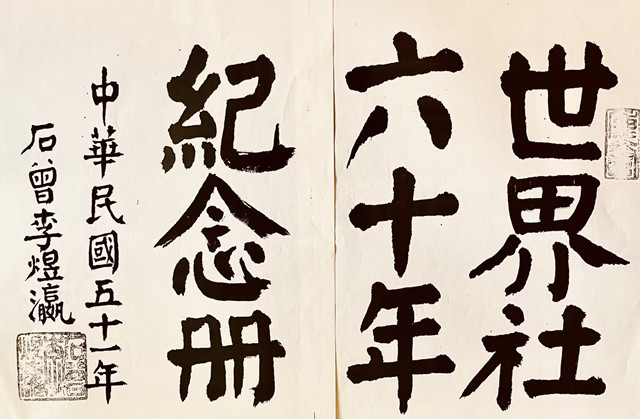 世界社
六十年
紀念册
中華民國五十一年
石曾李煜瀛